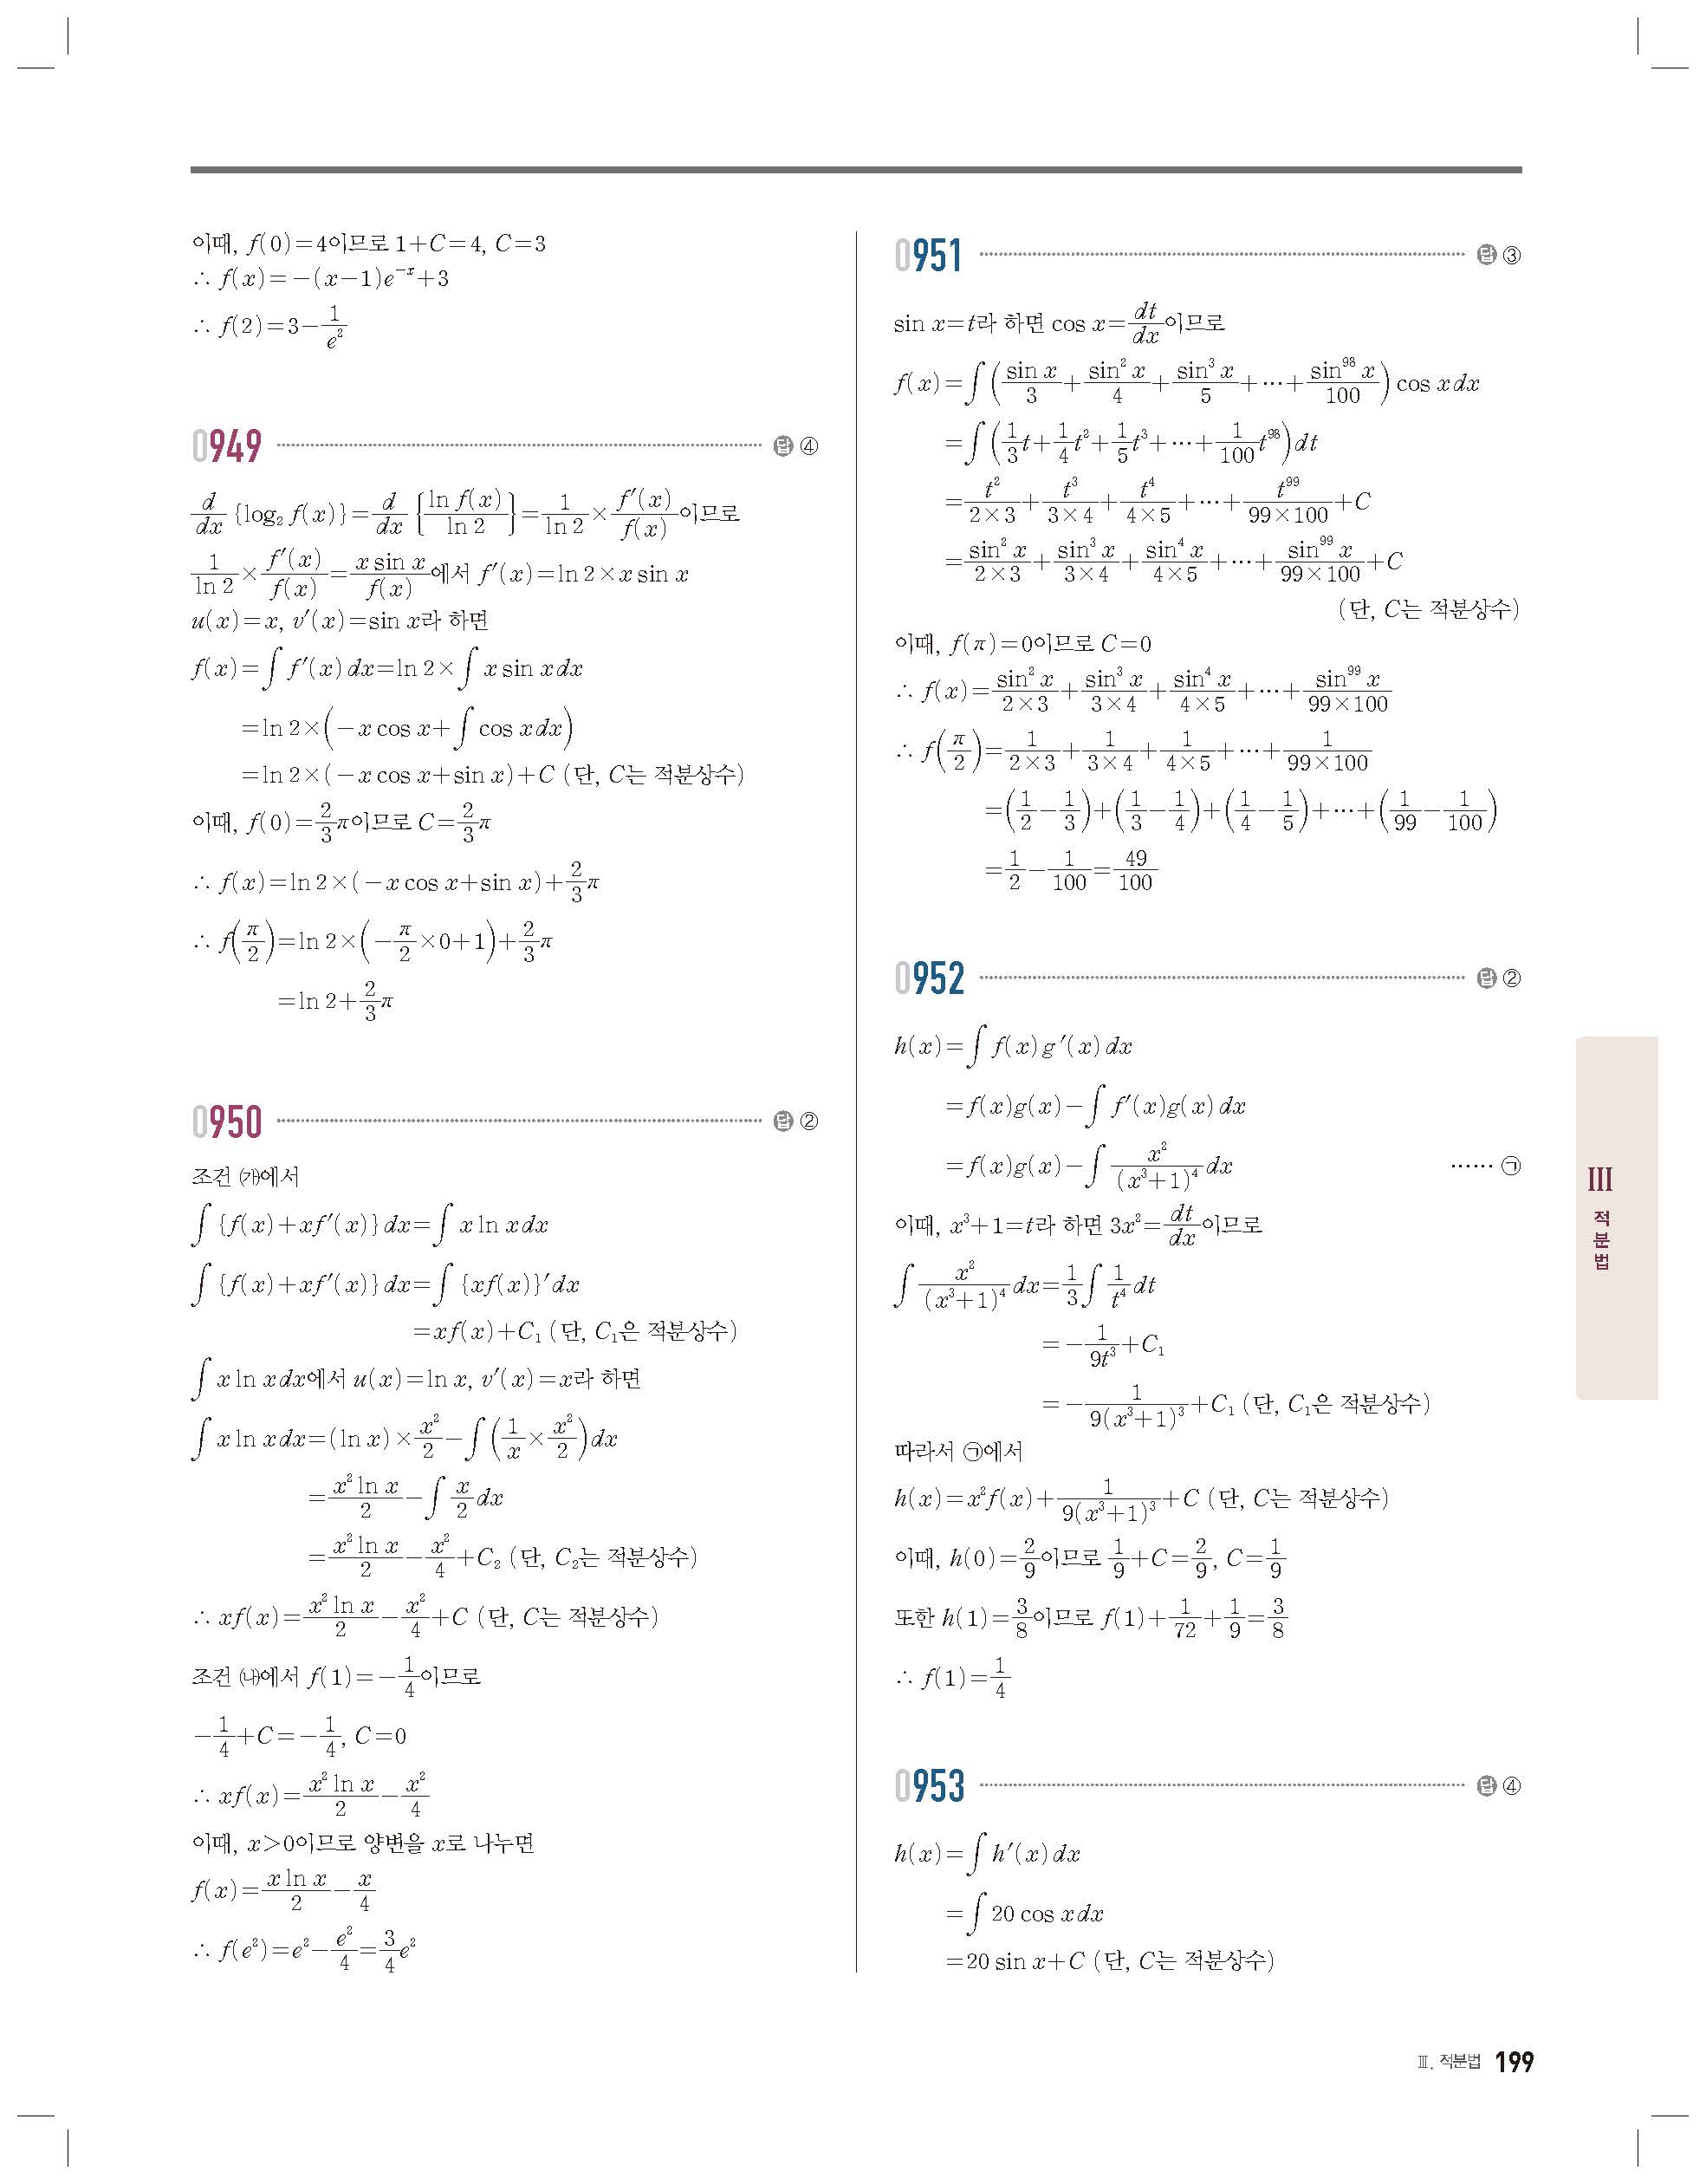 이때, f(0)=4이므로 1+C=4, C=3
∴ f(x)=-(x-1)e^{-x}+3
∴ f(2)=3-\frac{1}{e^2}
0949 답 ④
\frac{d}{dx}{log_2 f(x)}=\frac{d}{dx}{\frac{ln f(x)}{ln 2}}=\frac{1}{ln 2}×\frac{f'(x)}{f(x)}이므로
\frac{1}{ln 2}×\frac{f'(x)}{f(x)}=\frac{x sin x}{f(x)}에서 f'(x)=ln 2×x sin x
u(x)=x, v'(x)=sin x라 하면
f(x)=∫f'(x)dx=ln 2×∫x sin x dx
=ln 2×(-x cos x+∫cos x dx)
=ln 2×(-x cos x+sin x)+C (단, C는 적분상수)
이때, f(0)=\frac{2}{3}π이므로 C=\frac{2}{3}π
∴ f(x)=ln 2×(-x cos x+sin x)+\frac{2}{3}π
∴ f(\frac{π}{2})=ln 2×(-\frac{π}{2}×0+1)+\frac{2}{3}π
=ln 2+\frac{2}{3}π
0950 답 ②
조건 ㈎에서
∫{f(x)+xf'(x)}dx=∫x ln x dx
∫{f(x)+xf'(x)}dx=∫{xf(x)}'dx
=xf(x)+C_1 (단, C_1은 적분상수)
∫x ln x dx에서 u(x)=ln x, v'(x)=x라 하면
∫x ln x dx=(ln x)×\frac{x^2}{2}-∫(\frac{1}{x}×\frac{x^2}{2})dx
=\frac{x^2 ln x}{2}-∫\frac{x}{2}dx
=\frac{x^2 ln x}{2}-\frac{x^2}{4}+C_2 (단, C_2는 적분상수)
∴ xf(x)=\frac{x^2 ln x}{2}-\frac{x^2}{4}+C (단, C는 적분상수)
조건 ㈏에서 f(1)=-\frac{1}{4}이므로
-\frac{1}{4}+C=-\frac{1}{4}, C=0
∴ xf(x)=\frac{x^2 ln x}{2}-\frac{x^2}{4}
이때, x>0이므로 양변을 x로 나누면
f(x)=\frac{x ln x}{2}-\frac{x}{4}
∴ f(e^2)=e^2-\frac{e^2}{4}=\frac{3}{4}e^2
0951 답 ③
sin x=t라 하면 cos x=\frac{dt}{dx}이므로
f(x)=∫(\frac{sin x}{3}+\frac{sin^2 x}{4}+\frac{sin^3 x}{5}+⋯+\frac{sin^{98} x}{100})cos x dx
=∫(\frac{1}{3}t+\frac{1}{4}t^2+\frac{1}{5}t^3+⋯+\frac{1}{100}t^{98})dt
=\frac{t^2}{2×3}+\frac{t^3}{3×4}+\frac{t^4}{4×5}+⋯+\frac{t^{99}}{99×100}+C
=\frac{sin^2 x}{2×3}+\frac{sin^3 x}{3×4}+\frac{sin^4 x}{4×5}+⋯+\frac{sin^{99} x}{99×100}+C
(단, C는 적분상수)
이때, f(π)=0이므로 C=0
∴ f(x)=\frac{sin^2 x}{2×3}+\frac{sin^3 x}{3×4}+\frac{sin^4 x}{4×5}+⋯+\frac{sin^{99} x}{99×100}
∴ f(\frac{π}{2})=\frac{1}{2×3}+\frac{1}{3×4}+\frac{1}{4×5}+⋯+\frac{1}{99×100}
=(\frac{1}{2}-\frac{1}{3})+(\frac{1}{3}-\frac{1}{4})+(\frac{1}{4}-\frac{1}{5})+⋯+(\frac{1}{99}-\frac{1}{100})
=\frac{1}{2}-\frac{1}{100}=\frac{49}{100}
0952 답 ②
h(x)=∫f(x)g'(x)dx
=f(x)g(x)-∫f'(x)g(x)dx
=f(x)g(x)-∫\frac{x^2}{(x^3+1)^4}dx ⋯⋯ ㉠
이때, x^3+1=t라 하면 3x^2=\frac{dt}{dx}이므로
∫\frac{x^2}{(x^3+1)^4}dx=\frac{1}{3}∫\frac{1}{t^4}dt
=-\frac{1}{9t^3}+C_1
=-\frac{1}{9(x^3+1)^3}+C_1 (단, C_1은 적분상수)
따라서 ㉠에서
h(x)=x^2f(x)+\frac{1}{9(x^3+1)^3}+C (단, C는 적분상수)
이때, h(0)=\frac{2}{9}이므로 \frac{1}{9}+C=\frac{2}{9}, C=\frac{1}{9}
또한 h(1)=\frac{3}{8}이므로 f(1)+\frac{1}{72}+\frac{1}{9}=\frac{3}{8}
∴ f(1)=\frac{1}{4}
0953 답 ④
h(x)=∫h'(x)dx
=∫20 cos x dx
=20 sin x+C (단, C는 적분상수)
Ⅲ
적분법
Ⅲ. 적분법 199